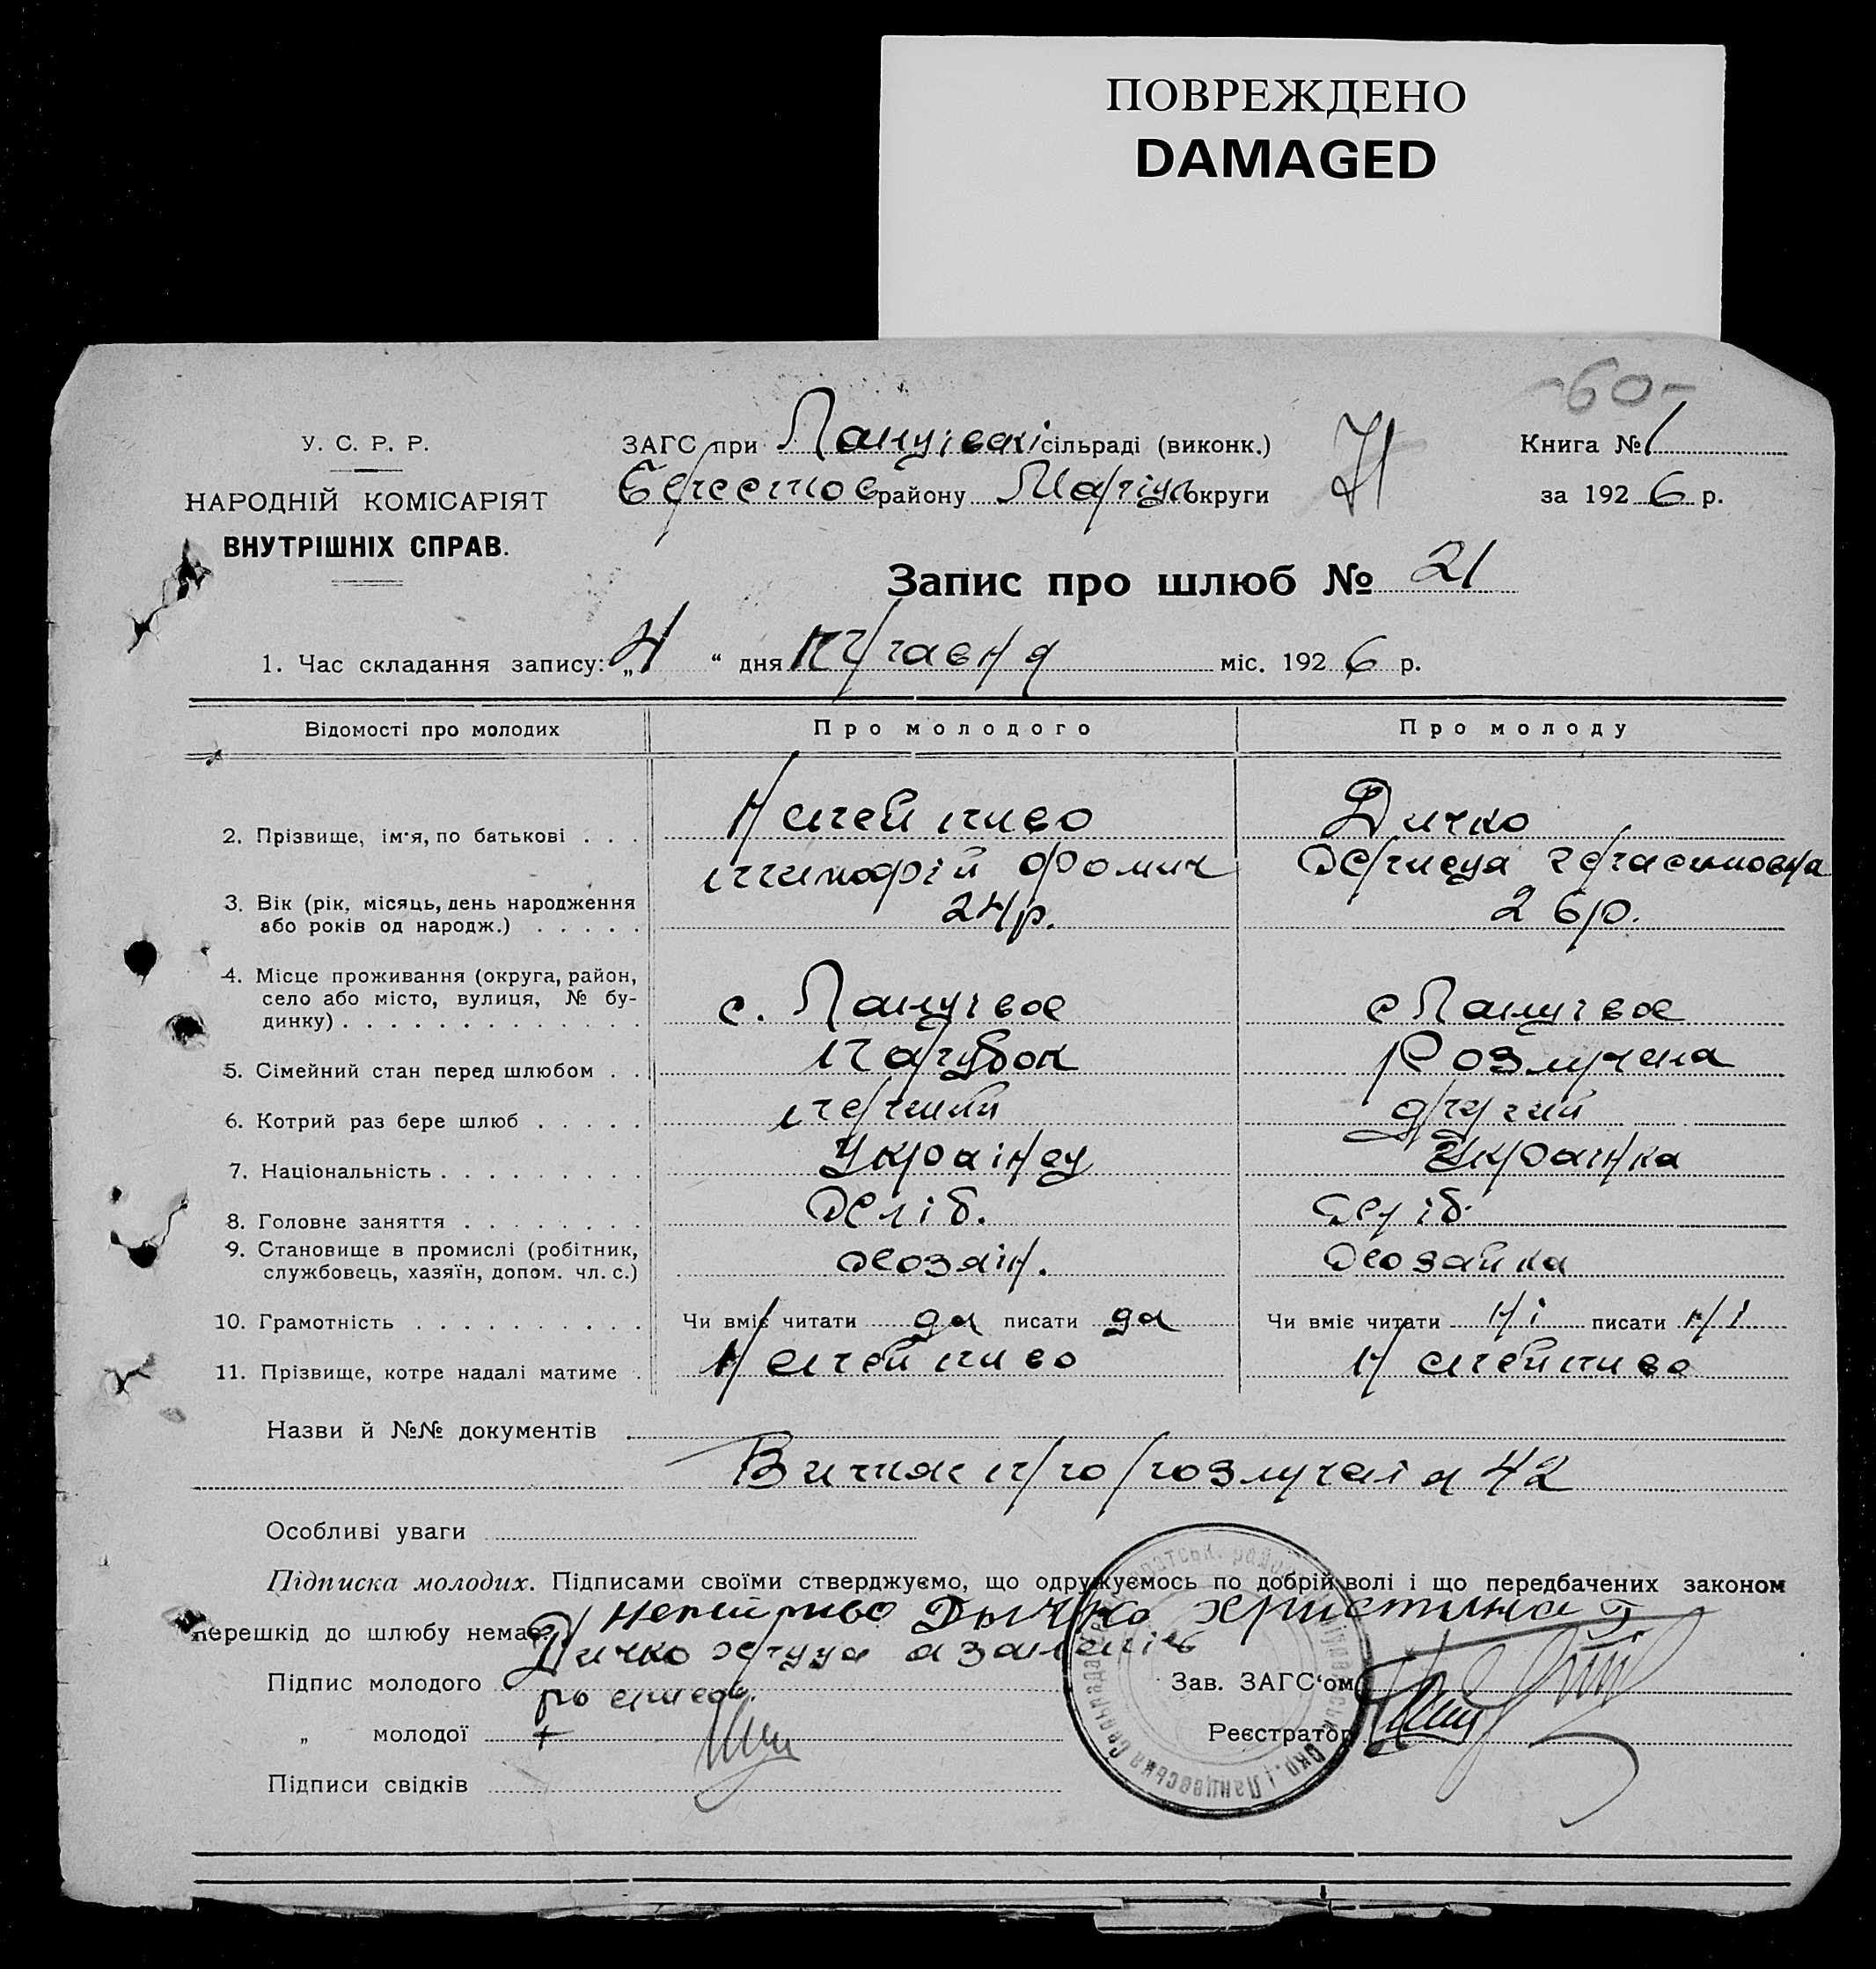 ПОВРЕЖДЕНО
DAMAGED
-60-
У. С. Р. Р.
НАРОДНІЙ КОМІСАРІЯТ
ВНУТРІШНІХ СПРАВ.
ЗАГС при сільраді (виконк.)
району Маріуп округи
Книга № 1
за 1926 р.
Запис про шлюб № 21
1. Час складання запису: „4“ дня Травня міс. 1926 р.
Відомості про молодих Про молодого Про молоду
2. Прізвище, ім'я, по батькові . . . Непейпиво Дичко
Фомич Герасимовна
3. Вік (рік, місяць, день народження
або років од народж.) . . . . . 24 р. 26 р.
4. Місце проживання (округа, район,
село або місто, вулиця, № бу-
динку) . . . . . . . . . . . . . с. с
5. Сімейний стан перед шлюбом . . Парубок Розлучена
6. Котрий раз бере шлюб . . . . . первий другий
7. Національність . . . . . . . . . Українец Українка
8. Головне заняття . . . . . . . . Хліб. Хліб.
9. Становище в промислі (робітник,
службовець, хазяїн, допом. чл. с.) Хозяін. Хозайка
10. Грамотність . . . . . . . . . . Чи вміє читати да писати да Чи вміє читати ні писати ні
11. Прізвище, котре надалі матиме . Непейпиво Непейпиво
Назви й №№ документів
Витяж про розлученія 42
Особливі уваги
Підписка молодих. Підписами своїми стверджуємо, що одружуємось по добрій волі і що передбачених законом
перешкід до шлюбу немає. Непейпиво Дычко Христина Г
Дичко
Підпис молодого
„ молодої +
Підписи свідків
Зав. ЗАГС'ом
Реєстратор